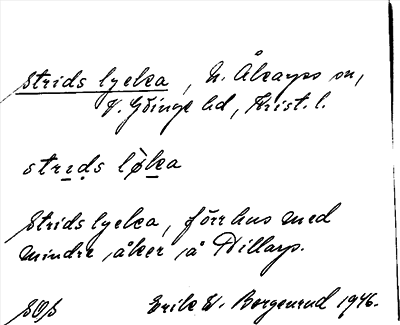 Strids lycka, N. Åkarps sn,
V. Göinge hd, Krist. l.
strıds løka
Strids lycka, förr hus med
mindre åker å Dillarp.
SOS Erik W. Borgenrud 1946.